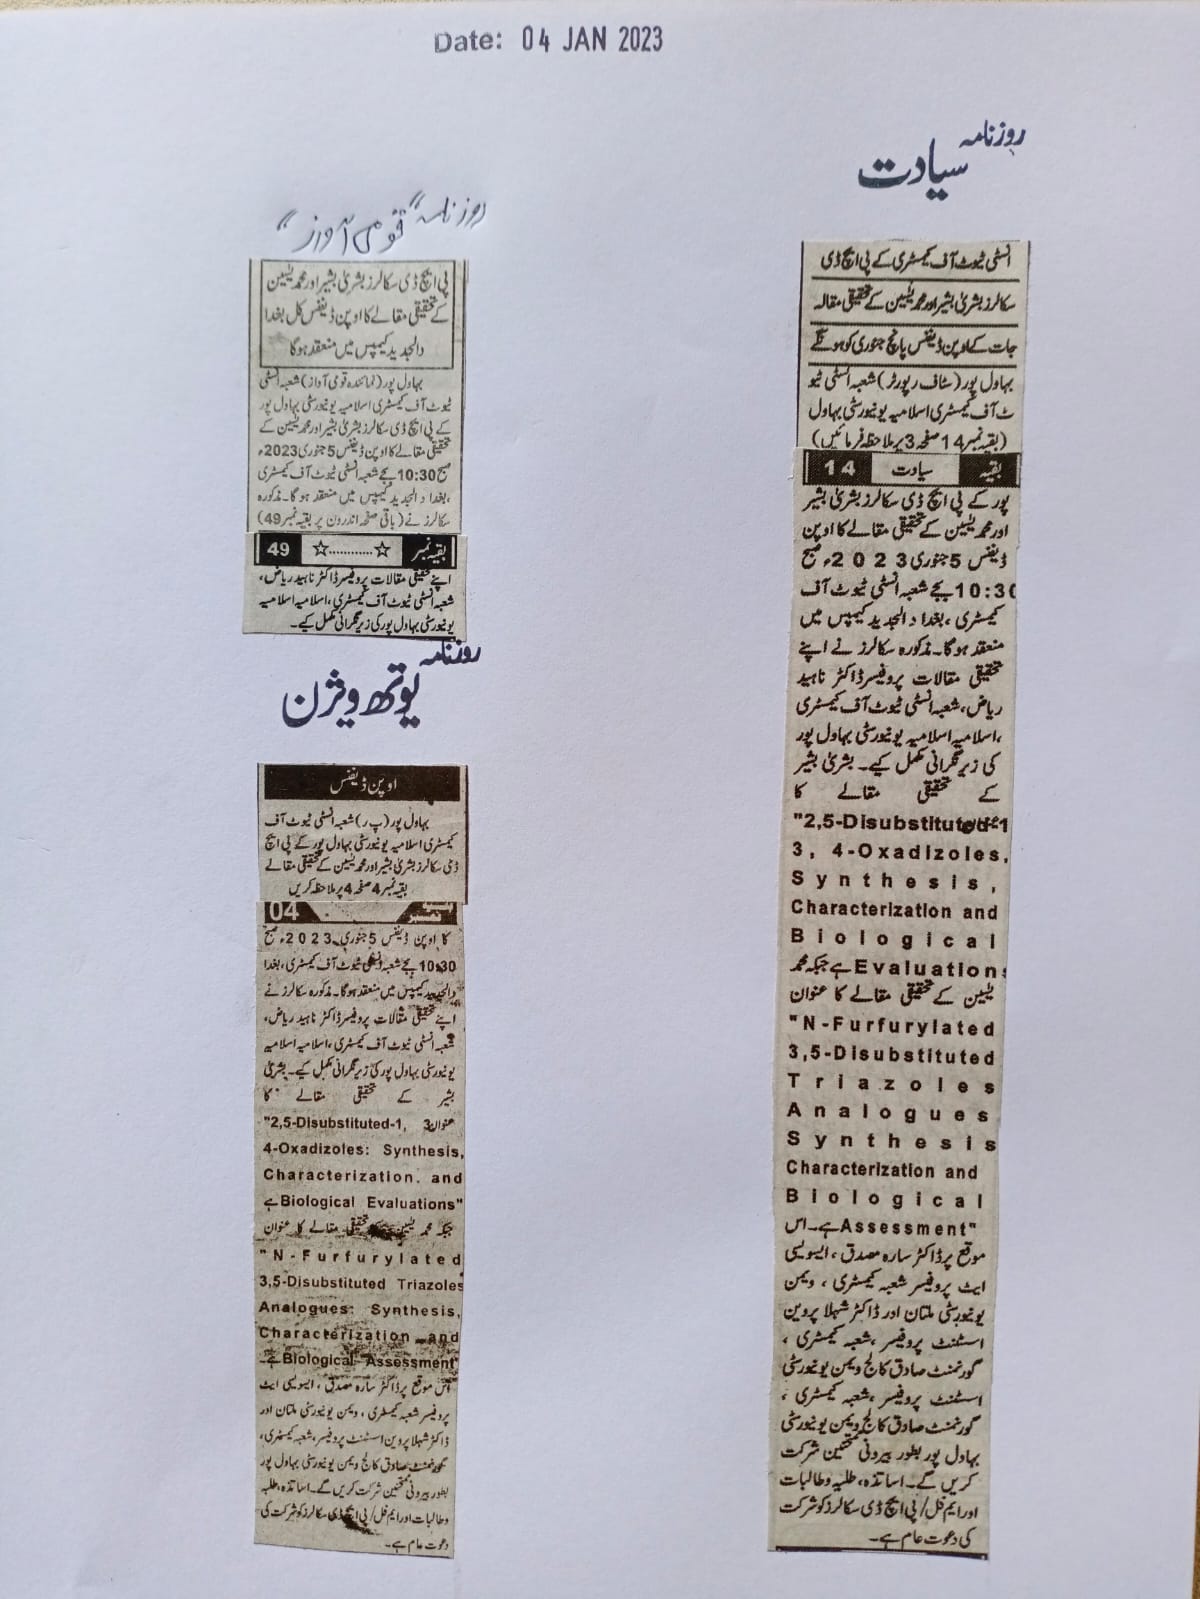 Date: 04 JAN 2023
روزنامہ
سیادت
انسٹی ٹیوٹ آف کیمسٹری کے پی ایچ ڈی
سکالرز بشریٰ بشیر اور محمد یٰسین کے تحقیقی مقالہ
جات کے اوپن ڈیفنس پانچ جنوری کو ہونگے
بہاول پور (سٹاف رپورٹر) شعبہ انسٹی ٹیو
ٹ آف کیمسٹری اسلامیہ یونیورسٹی بہاول
(بقیہ نمبر 14 صفحہ 3 پر ملاحظہ فرمائیں)
بقیہ سیادت 14
پور کے پی ایچ ڈی سکالرز بشریٰ بشیر
اور محمد یٰسین کے تحقیقی مقالے کا اوپن
ڈیفنس 5 جنوری 2023ء صبح
10:30 بجے شعبہ انسٹی ٹیوٹ آف
کیمسٹری، بغداد الجدید کیمپس میں
منعقد ہوگا۔ مذکورہ سکالرز نے اپنے
تحقیقی مقالات پروفیسر ڈاکٹر ناہید
ریاض، شعبہ انسٹی ٹیوٹ آف کیمسٹری
،اسلامیہ اسلامیہ یونیورسٹی بہاول پور
کی زیر نگرانی مکمل کیے۔ بشریٰ بشیر
کے تحقیقی مقالے کا
"2,5-Disubstituted-1
3, 4-Oxadizoles,
Synthesis,
Characterization and
Biological
Evaluations ہے جبکہ محمد
یٰسین کے تحقیقی مقالے کا عنوان
"N-Furfurylated
3,5-Disubstituted
Triazoles
Analogues
Synthesis
Characterization and
Biological
Assessment" ہے۔ اس
موقع پر ڈاکٹر سارہ مصدق، ایسوسی
ایٹ پروفیسر شعبہ کیمسٹری، ویمن
یونیورسٹی ملتان اور ڈاکٹر شہلا پروین
اسسٹنٹ پروفیسر، شعبہ کیمسٹری،
گورنمنٹ صادق کالج ویمن یونیورسٹی
اسسٹنٹ پروفیسر، شعبہ کیمسٹری،
گورنمنٹ صادق کالج ویمن یونیورسٹی
بہاول پور بطور بیرونی ممتحین شرکت
کریں گے۔ اساتذہ، طلبہ وطالبات
اور ایم فل/پی ایچ ڈی سکالرز کو شرکت
کی دعوت عام ہے۔
روزنامہ "قومی آواز"
پی ایچ ڈی سکالرز بشریٰ بشیر اور محمد یٰسین
کے تحقیقی مقالے کا اوپن ڈیفنس کل بغدا
دالجدید کیمپس میں منعقد ہوگا
بہاول پور (نمائندہ قومی آواز) شعبہ انسٹی
ٹیوٹ آف کیمسٹری اسلامیہ یونیورسٹی بہاول پور
کے پی ایچ ڈی سکالرز بشریٰ بشیر اور محمد یٰسین کے
تحقیقی مقالے کا اوپن ڈیفنس 5 جنوری 2023ء
صبح 10:30 بجے شعبہ انسٹی ٹیوٹ آف کیمسٹری
،بغداد الجدید کیمپس میں منعقد ہوگا۔ مذکورہ
سکالرز نے (باقی صفحہ اندرون پر بقیہ نمبر 49)
بقیہ نمبر ☆...........☆ 49
اپنے تحقیقی مقالات پروفیسر ڈاکٹر ناہید ریاض،
شعبہ انسٹی ٹیوٹ آف کیمسٹری، اسلامیہ اسلامیہ
یونیورسٹی بہاول پور کی زیر نگرانی مکمل کیے۔
روزنامہ
یوتھ ویژن
اوپن ڈیفنس
بہاول پور (پ ر) شعبہ انسٹی ٹیوٹ آف
کیمسٹری اسلامیہ یونیورسٹی بہاول پور کے پی ایچ
ڈی سکالرز بشریٰ بشیر اور محمد یٰسین کے تحقیقی مقالے
بقیہ نمبر 4 صفحہ 4 پر ملاحظہ کریں
بقیہ نمبر 04
کا اوپن ڈیفنس 5 جنوری 2023ء صبح
10:30 بجے شعبہ انسٹی ٹیوٹ آف کیمسٹری، بغدا
دالجدید کیمپس میں منعقد ہوگا۔ مذکورہ سکالرز نے
اپنے تحقیقی مقالات پروفیسر ڈاکٹر ناہید ریاض،
شعبہ انسٹی ٹیوٹ آف کیمسٹری، اسلامیہ اسلامیہ
یونیورسٹی بہاول پور کی زیر نگرانی مکمل کیے۔ بشریٰ
بشیر کے تحقیقی مقالے کا
عنوان "2,5-Disubstituted-1, 3
4-Oxadizoles: Synthesis,
Characterization. and
Biological Evaluations" ہے
جبکہ محمد یٰسین کے تحقیقی مقالے کا عنوان
"N-Furfurylated
3,5-Disubstituted Triazoles
Analogues: Synthesis,
Characterization and
Biological Assessment" ہے۔
اس موقع پر ڈاکٹر سارہ مصدق، ایسوسی ایٹ
پروفیسر شعبہ کیمسٹری، ویمن یونیورسٹی ملتان اور
ڈاکٹر شہلا پروین اسسٹنٹ پروفیسر، شعبہ کیمسٹری،
گورنمنٹ صادق کالج ویمن یونیورسٹی بہاول پور
بطور بیرونی ممتحین شرکت کریں گے۔ اساتذہ، طلبہ
وطالبات اور ایم فل/پی ایچ ڈی سکالرز کو شرکت کی
دعوت عام ہے۔